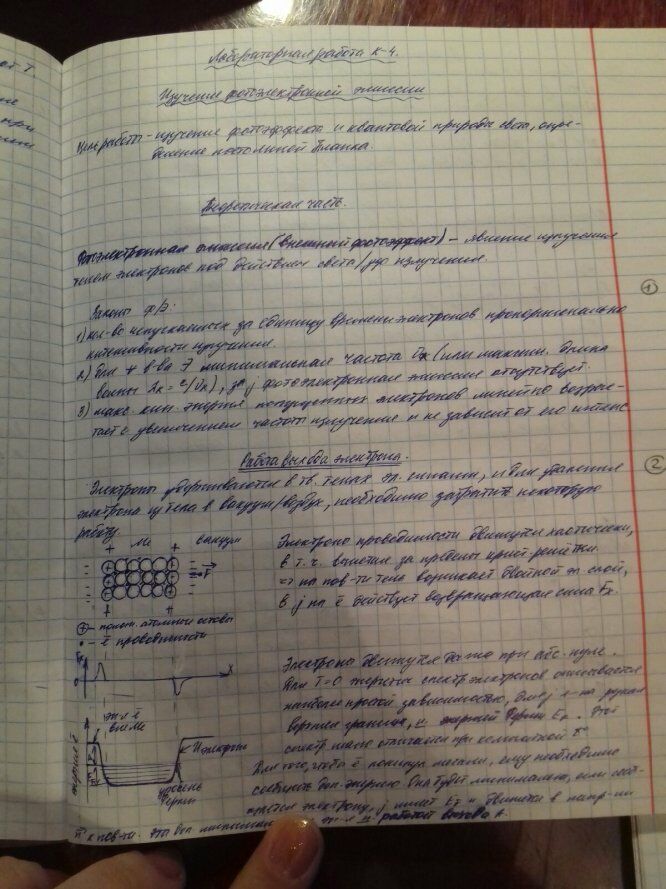 Лабораторная работа К-4.
Изучение фотоэлектронной эмиссии
Цель работы - изучение фотоэффекта и квантовой природы света, опре-
деление постоянной Планка.
Теоретическая часть.
Фотоэлектронная эмиссия (внешний фотоэффект) - явление испускания
телом электронов под действием света/ излучения.
Законы ф/э:
1) кол-во испускаемых за единицу времени электронов пропорционально
интенсивности излучения.
2) для ∀ в-ва ∃ минимальная частота νк (или максим. длина
волны λк = c/νк), фотоэлектронная эмиссия отсутствует.
3) макс кин. энергия испущенных электронов линейно возрас-
тает с увеличением частоты излучения и не зависит от его интенс
Работа выхода электрона.
Электроны удерживаются в тв. телах эл. силами, и для удаления
электрона из тела в вакуум/воздух, необходимо затратить некоторую
работу.
Ме вакуум
F
⊕ - полож. атомный остовы
• - ē проводимости
Электроны проводимости движутся хаотически,
в т.ч. вылетая за пределы крист решётки
=> на пов-ти тела возникает двойной эл слой,
в j на ē действует возвращающая сила Fx.
Fx
0
x
эн-я ē
вне Ме
энергия ē
уровень
Ферми
Электроны движутся даже при абс. нуле.
Для T=0 энергетич спектр электронов описывается
наиболее простой зависимостью, для j
верхняя граница, энергией Ферми EF. Этот
спектр мало отличается при комнатной t°
Для того, чтобы ē покинул металл, ему необходимо
сообщить доп. энергию. Она будет минимальна, если
электрону, j имеет EF и движется в напр-ии
n к пов-ти. Эта доп эн-я работой выхода A.
1
2